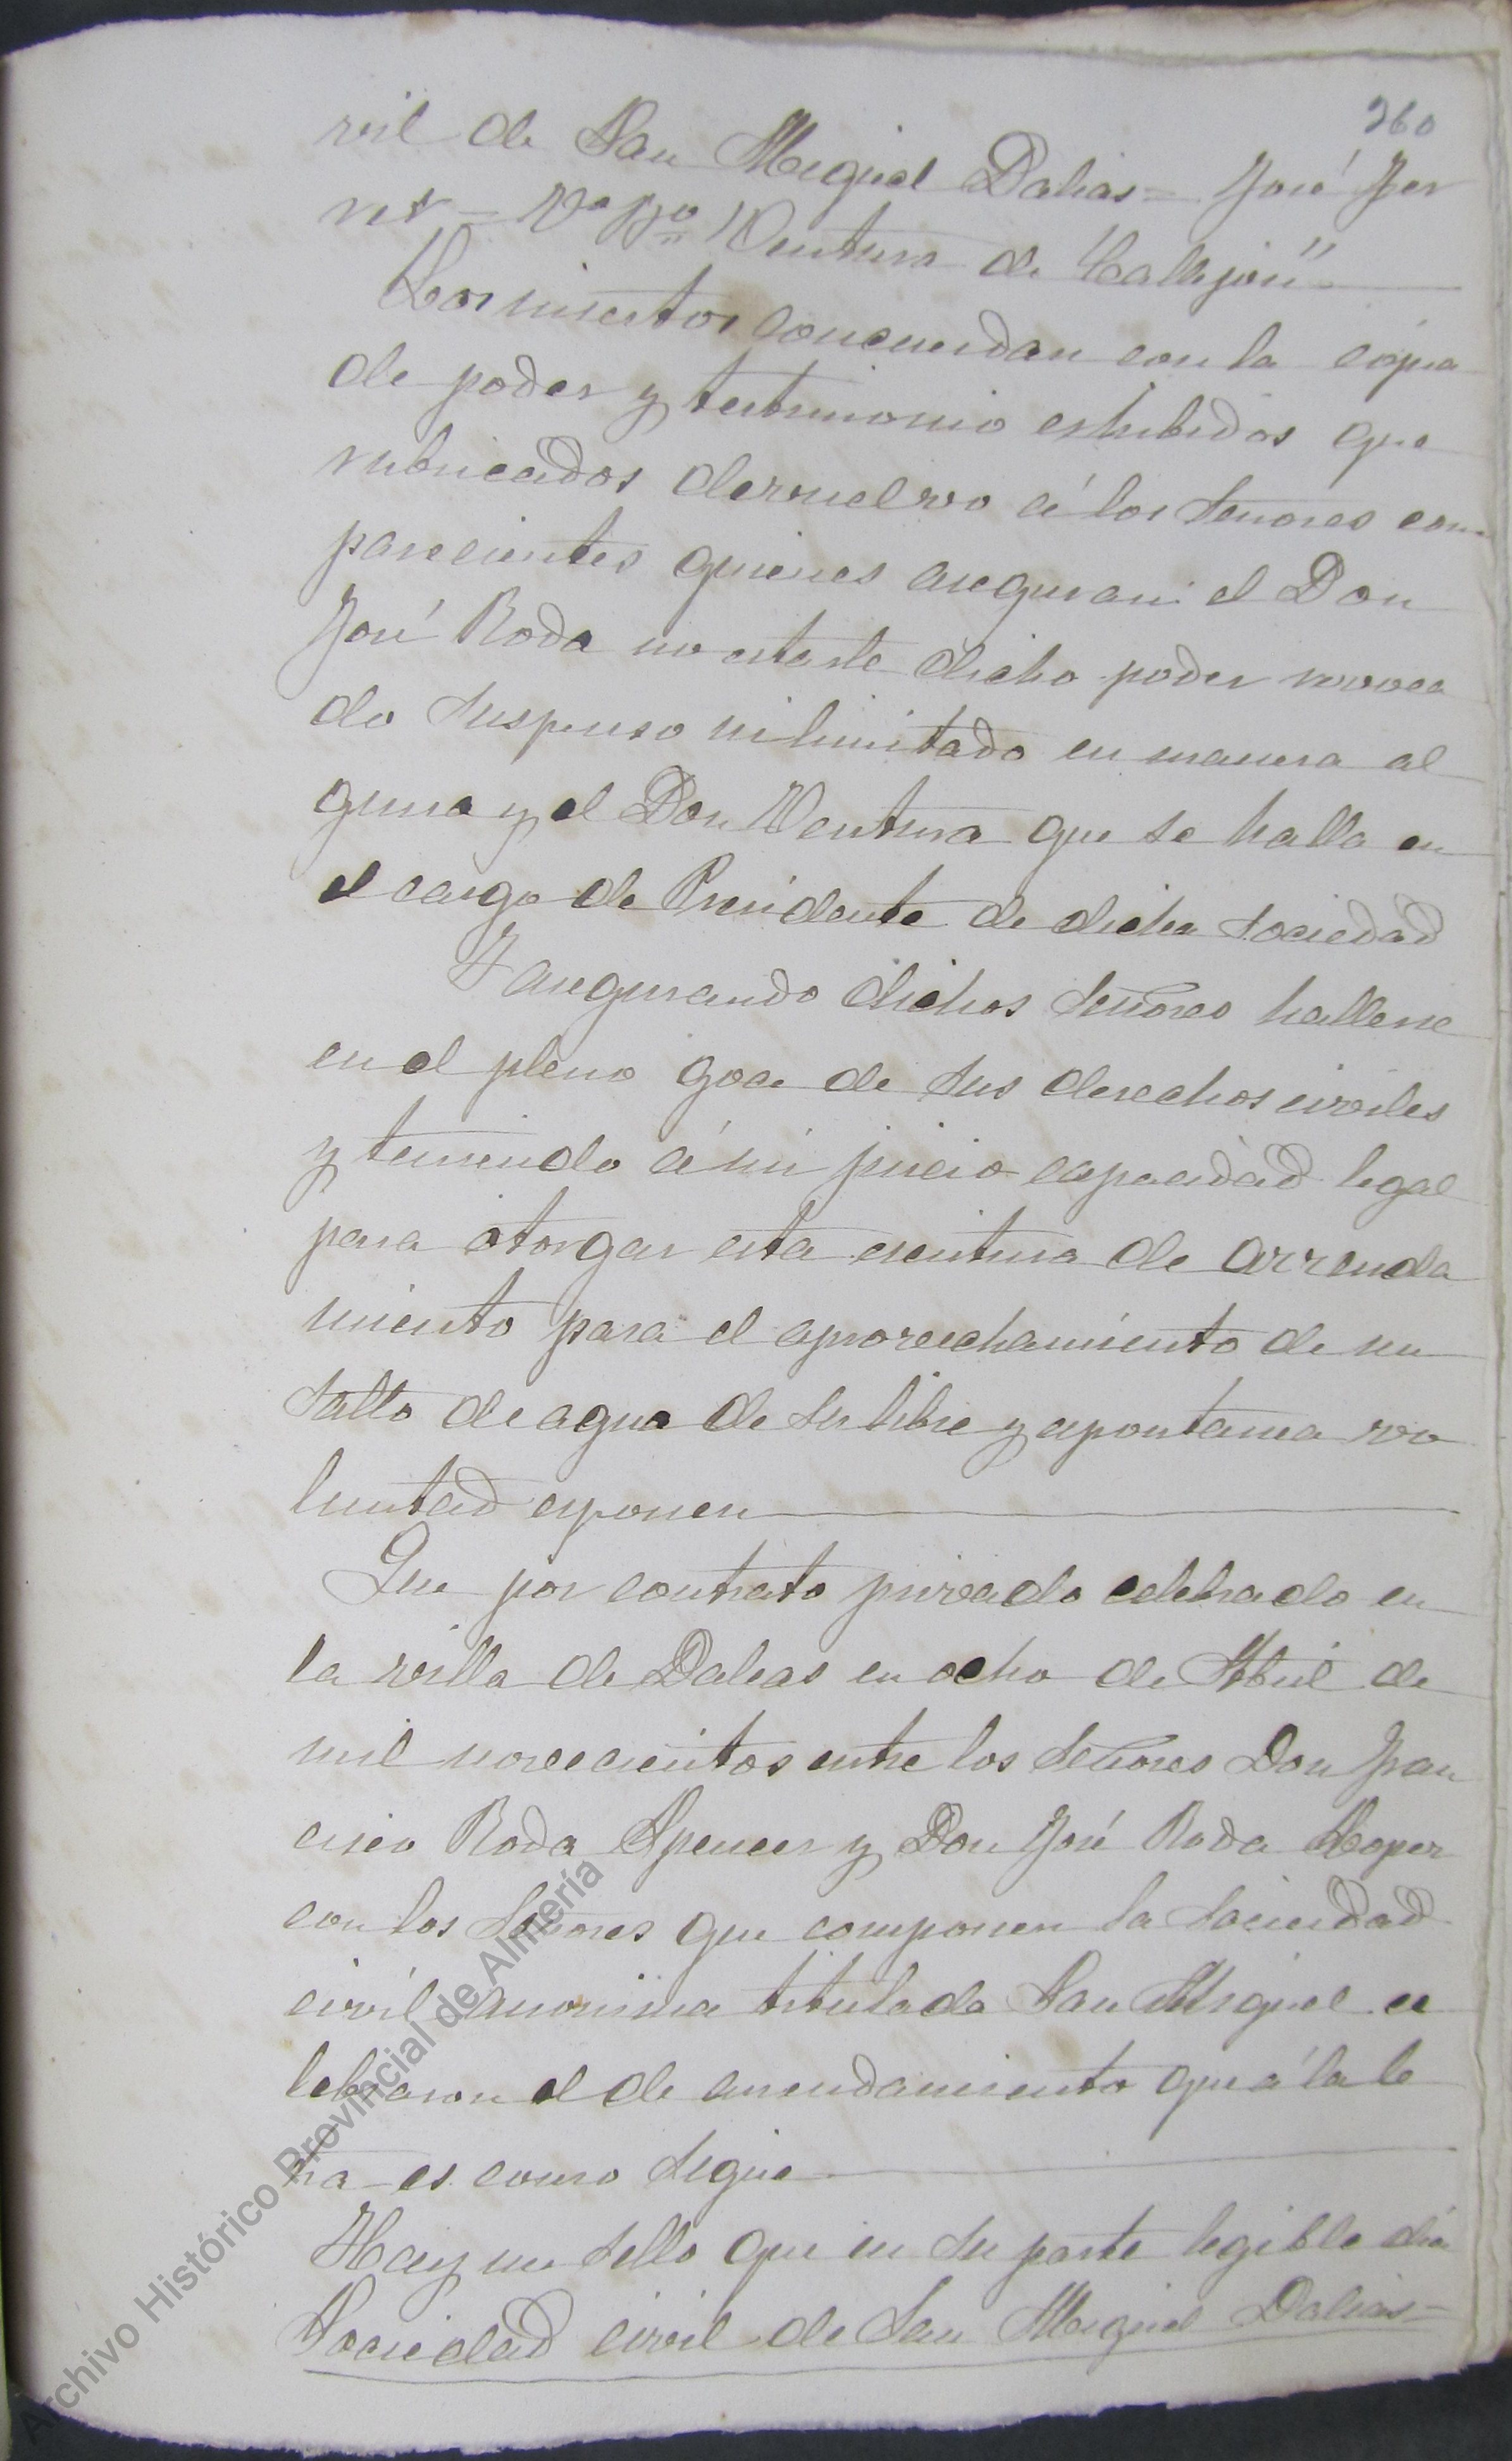 360
vil de San Miguel Dalias = José Fer
rer = Vº Bº Ventura de Callejon"
Los insertos concuerdan con la cópia
de poder y testimonio exhibidos que
rubricados devuelvo á los Señores com
parecientes quienes aseguran: el Don
José Roda no estarle dicho poder revoca
do suspenso ni limitado en manera al
guna y el Don Ventura que se halla en
el cargo de Presidente de dicha Sociedad
Y asegurando dichos Señores hallarse
en el pleno goce de sus derechos civiles
y teniendo á mi juicio capacidad legal
para otorgar esta escritura de arrenda
miento para el aprovechamiento de un
salto de agua de su libre y espontanea vo
luntad exponen
Que por contrato privado celebrado en
la villa de Dalias en ocho de Abril de
mil novecientos entre los Señores Don Fran
cisco Roda Spencer y Don José Roda Lopez
con los Señores que componen la Sociedad
civil anonima titulada San Miguel ce
lebraron el de arrendamiento que á la le
tra es como sigue
Hay un sello que en su parte legible dice
Sociedad civil de San Miguel Dalias =
Archivo Histórico Provincial de Almería